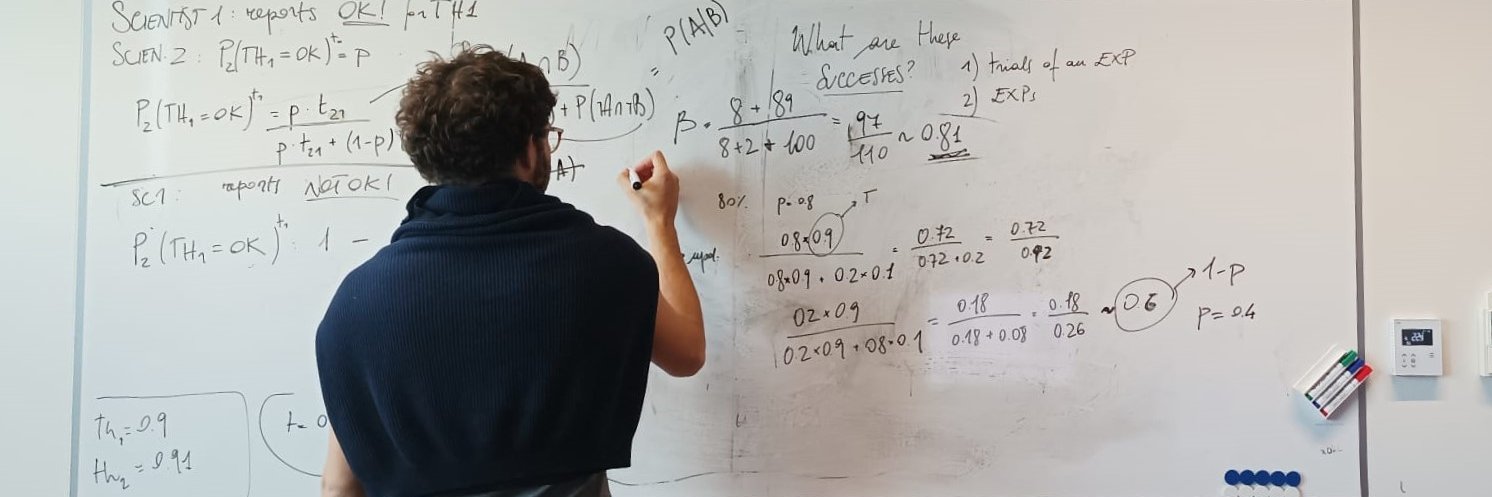 SCIENTIST 1: reports OK! for TH1
SCIEN. 2: P₂(TH₁=OK)^t₀ = p
P₂(TH₁=OK)^t₁ = p·t₂₁
p·t₂₁ + (1-p)
SC1: reports NOT OK!
P₂(TH₁=OK)^t₁: 1 -
th₁=0.9
th₂=0.91
t= 0
∩B)
+ P(¬A∩¬B)
A)
= P(A|B)
What are these
SUCCESSES?
1) trials of an EXP
2) EXPs
β = 8 + 89
8+2+100
= 97
110
~ 0.81
80% p=0.8
T
0.8×0.9
0.8×0.9 + 0.2×0.1
= 0.72
0.72+0.2
= 0.72
0.92
0.2×0.9
0.2×0.9 + 0.8×0.1
= 0.18
0.18+0.08
= 0.18
0.26
~ 0.6
1-p
p= 0.4